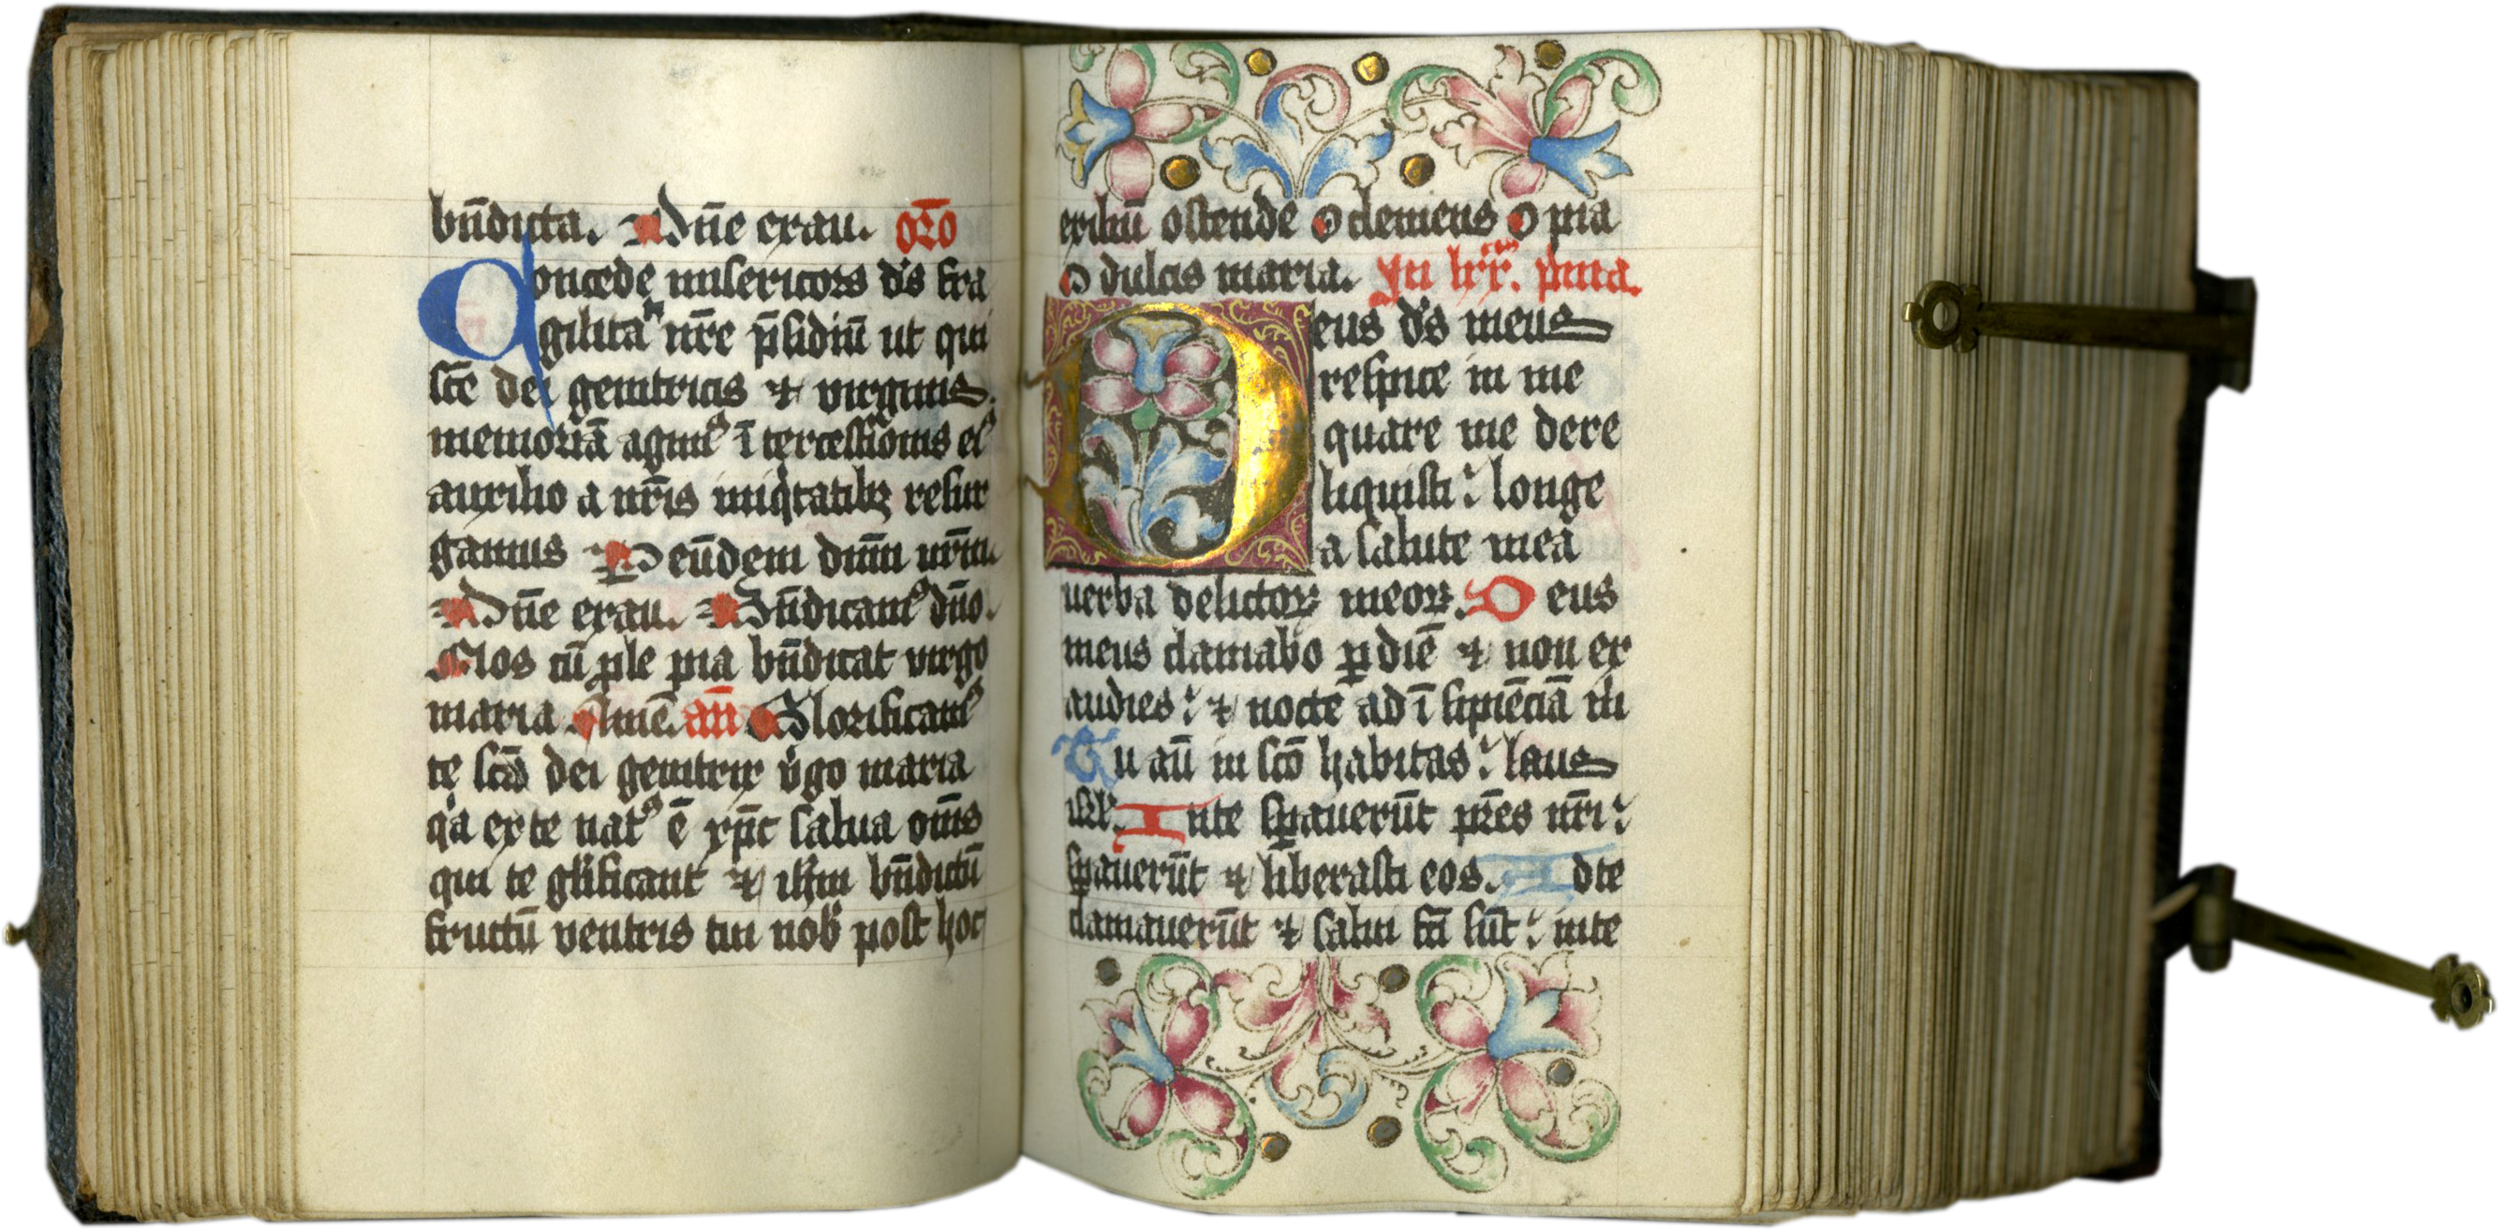 bn̄dicta. Dn̄e exau. oro̅
Concede misericors d's fra
gilitati nr̄e p̄sidiū ut qui
scē dei genitricis ⁊ virginis
memoriā agimꝰ ītercessionis eiꝰ
auxilio a nr̄is iniqͥtatibꝫ resur
gamus Ꝑ eūdem dnm̄ nr̄m
Dn̄e exau. Bn̄dicamꝰ dn̄o.
Nos cū ꝓle pia bn̄dicat virgo
maria Amē. an̄ Glorificamꝰ
te scā dei genitrix v̓go maria
qͥa ex te natꝰ ē xp̄c salua om̄s
qui te gl̓ificant ⁊ ih̄m bn̄dictū
fructū ventris tui nob̓ post hoc
exiliū ostende o clemens o pia
o dulcis maria. pͥma.
Deus d's meus
respice in me
quare me dere
liquisti: longe
a salute mea
uerba delictoꝝ meoꝝ. Deus
meus clamabo ꝑ diē ⁊ non ex
audies: ⁊ nocte ad īsipiēciā m̓
Tu aū in scō habitas: laus
isrl̓. In te sꝑauerūt pr̄es nr̄i:
sꝑauerūt ⁊ liberasti eos. Ad te
clamauerūt ⁊ salui fc̄i sūt: in te